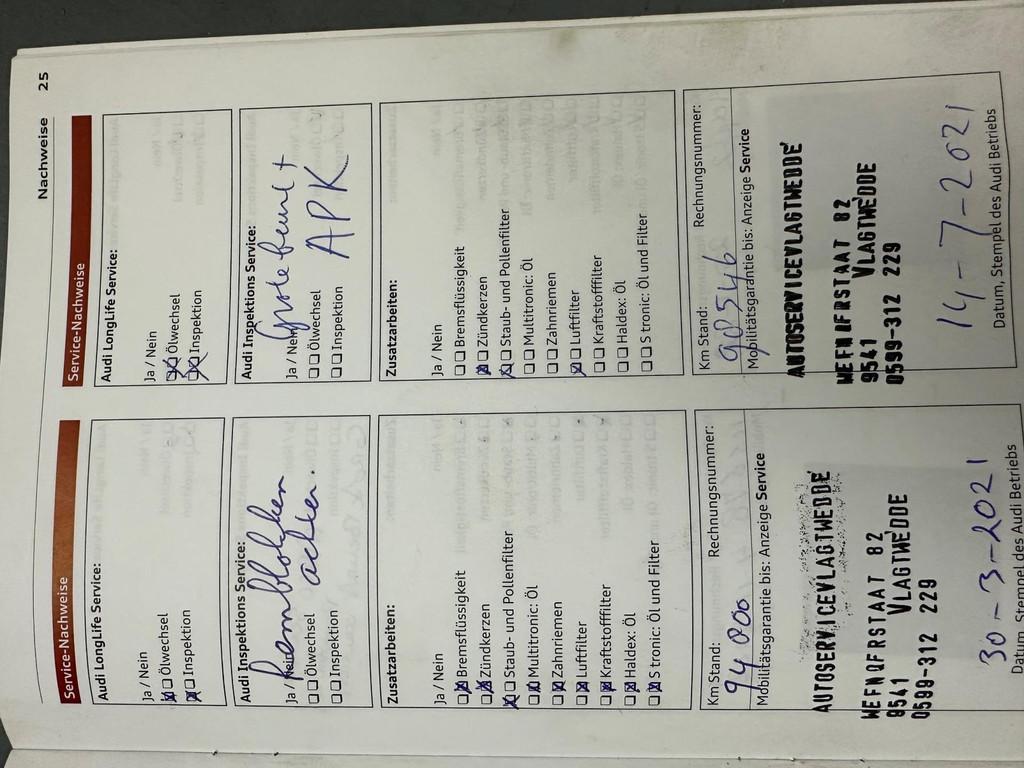 Nachweise 25
Service-Nachweise
Audi LongLife Service:
Ja / Nein
Ölwechsel
Inspektion
Audi Inspektions Service:
Ja / Nein
remblokken
achter.
Ölwechsel
Inspektion
Zusatzarbeiten:
Ja / Nein
Bremsflüssigkeit
Zündkerzen
Staub- und Pollenfilter
Multitronic: Öl
Zahnriemen
Luftfilter
Kraftstofffilter
Haldex: Öl
S tronic: Öl und Filter
Km Stand: Rechnungsnummer:
94000
Mobilitätsgarantie bis: Anzeige Service
AUTOSERVICEVLAGTWEDDE
WEENDERSTAAT 82
9541 VLAGTWEDDE
0599-312 229
30-3-2021
Datum, Stempel des Audi Betriebs
Service-Nachweise
Audi LongLife Service:
Ja / Nein
Ölwechsel
Inspektion
Audi Inspektions Service:
Ja / Nein
Grote beurt +
APK
Ölwechsel
Inspektion
Zusatzarbeiten:
Ja / Nein
Bremsflüssigkeit
Zündkerzen
Staub- und Pollenfilter
Multitronic: Öl
Zahnriemen
Luftfilter
Kraftstofffilter
Haldex: Öl
S tronic: Öl und Filter
Km Stand: Rechnungsnummer:
98546
Mobilitätsgarantie bis: Anzeige Service
AUTOSERVICEVLAGTWEDDE
WEENDERSTAAT 82
9541 VLAGTWEDDE
0599-312 229
14-7-2021
Datum, Stempel des Audi Betriebs